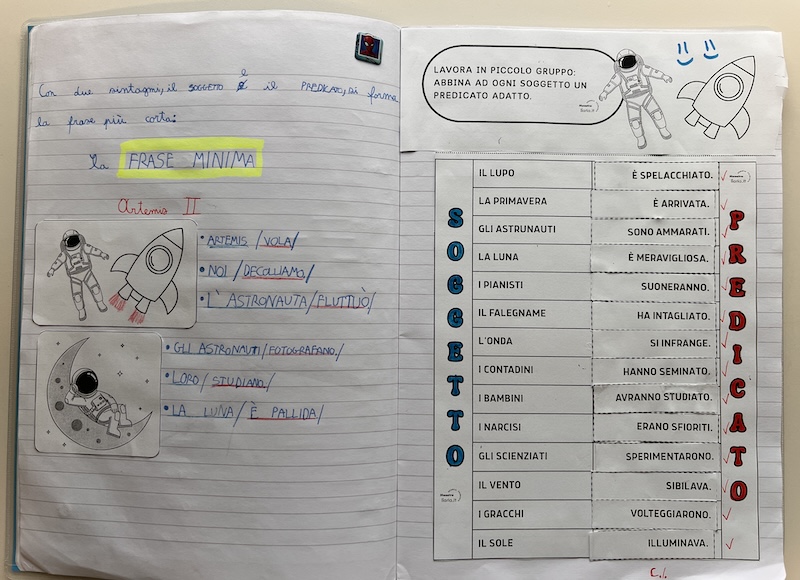 Con due sintagmi, il SOGGETTO e il PREDICATO, si forma
la frase più corta:
la FRASE MINIMA
Artemis II
• ARTEMIS / VOLA /
• NOI / DECOLLIAMO /
• L'ASTRONAUTA / FLUTTUÒ /
• GLI ASTRONAUTI / FOTOGRAFANO /
• LORO / STUDIANO /
• LA LUNA / È PALLIDA /
LAVORA IN PICCOLO GRUPPO:
ABBINA AD OGNI SOGGETTO UN
PREDICATO ADATTO.
SOGGETTO
PREDICATO
IL LUPO È SPELACCHIATO.
LA PRIMAVERA È ARRIVATA.
GLI ASTRUNAUTI SONO AMMARATI.
LA LUNA È MERAVIGLIOSA.
I PIANISTI SUONERANNO.
IL FALEGNAME HA INTAGLIATO.
L'ONDA SI INFRANGE.
I CONTADINI HANNO SEMINATO.
I BAMBINI AVRANNO STUDIATO.
I NARCISI ERANO SFIORITI.
GLI SCIENZIATI SPERIMENTARONO.
IL VENTO SIBILAVA.
I GRACCHI VOLTEGGIARONO.
IL SOLE ILLUMINAVA.